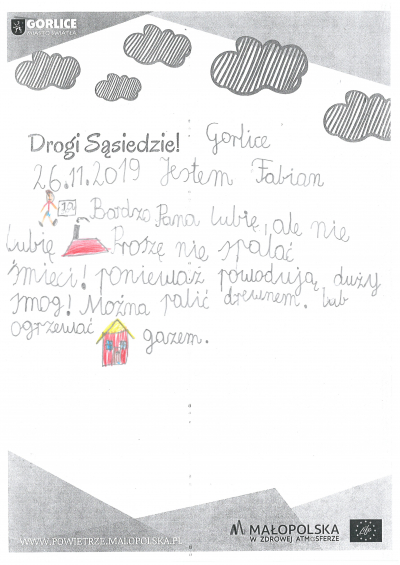 GORLICE
MIASTO ŚWIATŁA
Drogi Sąsiedzie! Gorlice
26.11.2019 Jestem Fabian
Bardzo Pana lubię, ale nie
lubię Proszę nie spalać
śmieci! ponieważ powodują duży
smog! Można palić drewnem. lub
ogrzewać gazem.
WWW.POWIETRZE.MALOPOLSKA.PL
MAŁOPOLSKA
W ZDROWEJ ATMOSFERZE